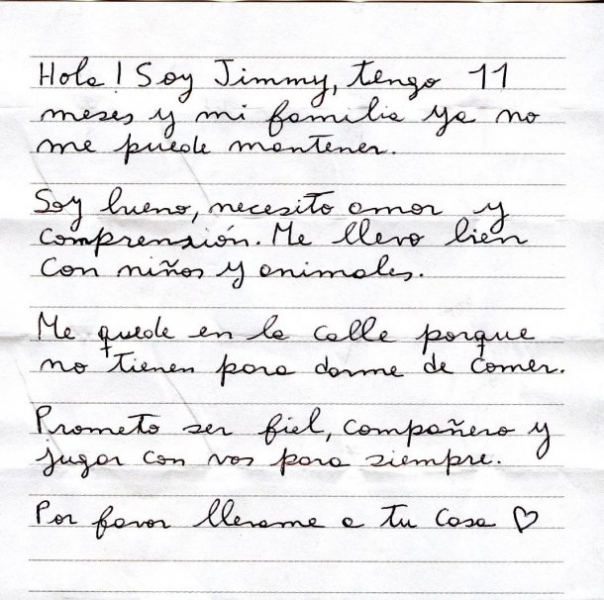 Hola! Soy Jimmy, tengo 11
meses y mi familia ya no
me puede mantener.
Soy bueno, necesito amor y
comprensión. Me llevo bien
con niños y animales.
Me quede en la calle porque
no tienen para darme de comer.
Prometo ser fiel, compañero y
jugar con vos para siempre.
Por favor llevame a tu casa ♡